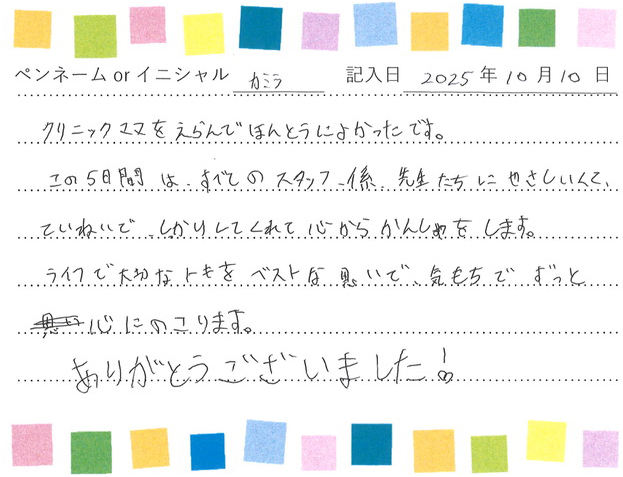 ペンネーム or イニシャル カミラ 記入日 2025年10月10日
クリニックママをえらんでほんとうによかったです。
この5日間は、すべてのスタッフ、係、先生たちにやさしいくて、
ていねいで、しかりしてくれて心からかんしゃをします。
ライフで大切なトキをベストな思いで、気もちでずっと
心にのこります。
ありがとうございました!